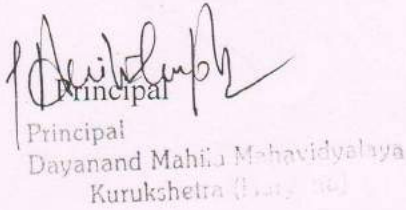 Principal
Principal
Dayanand Mahila Mahavidyalaya
Kurukshetra